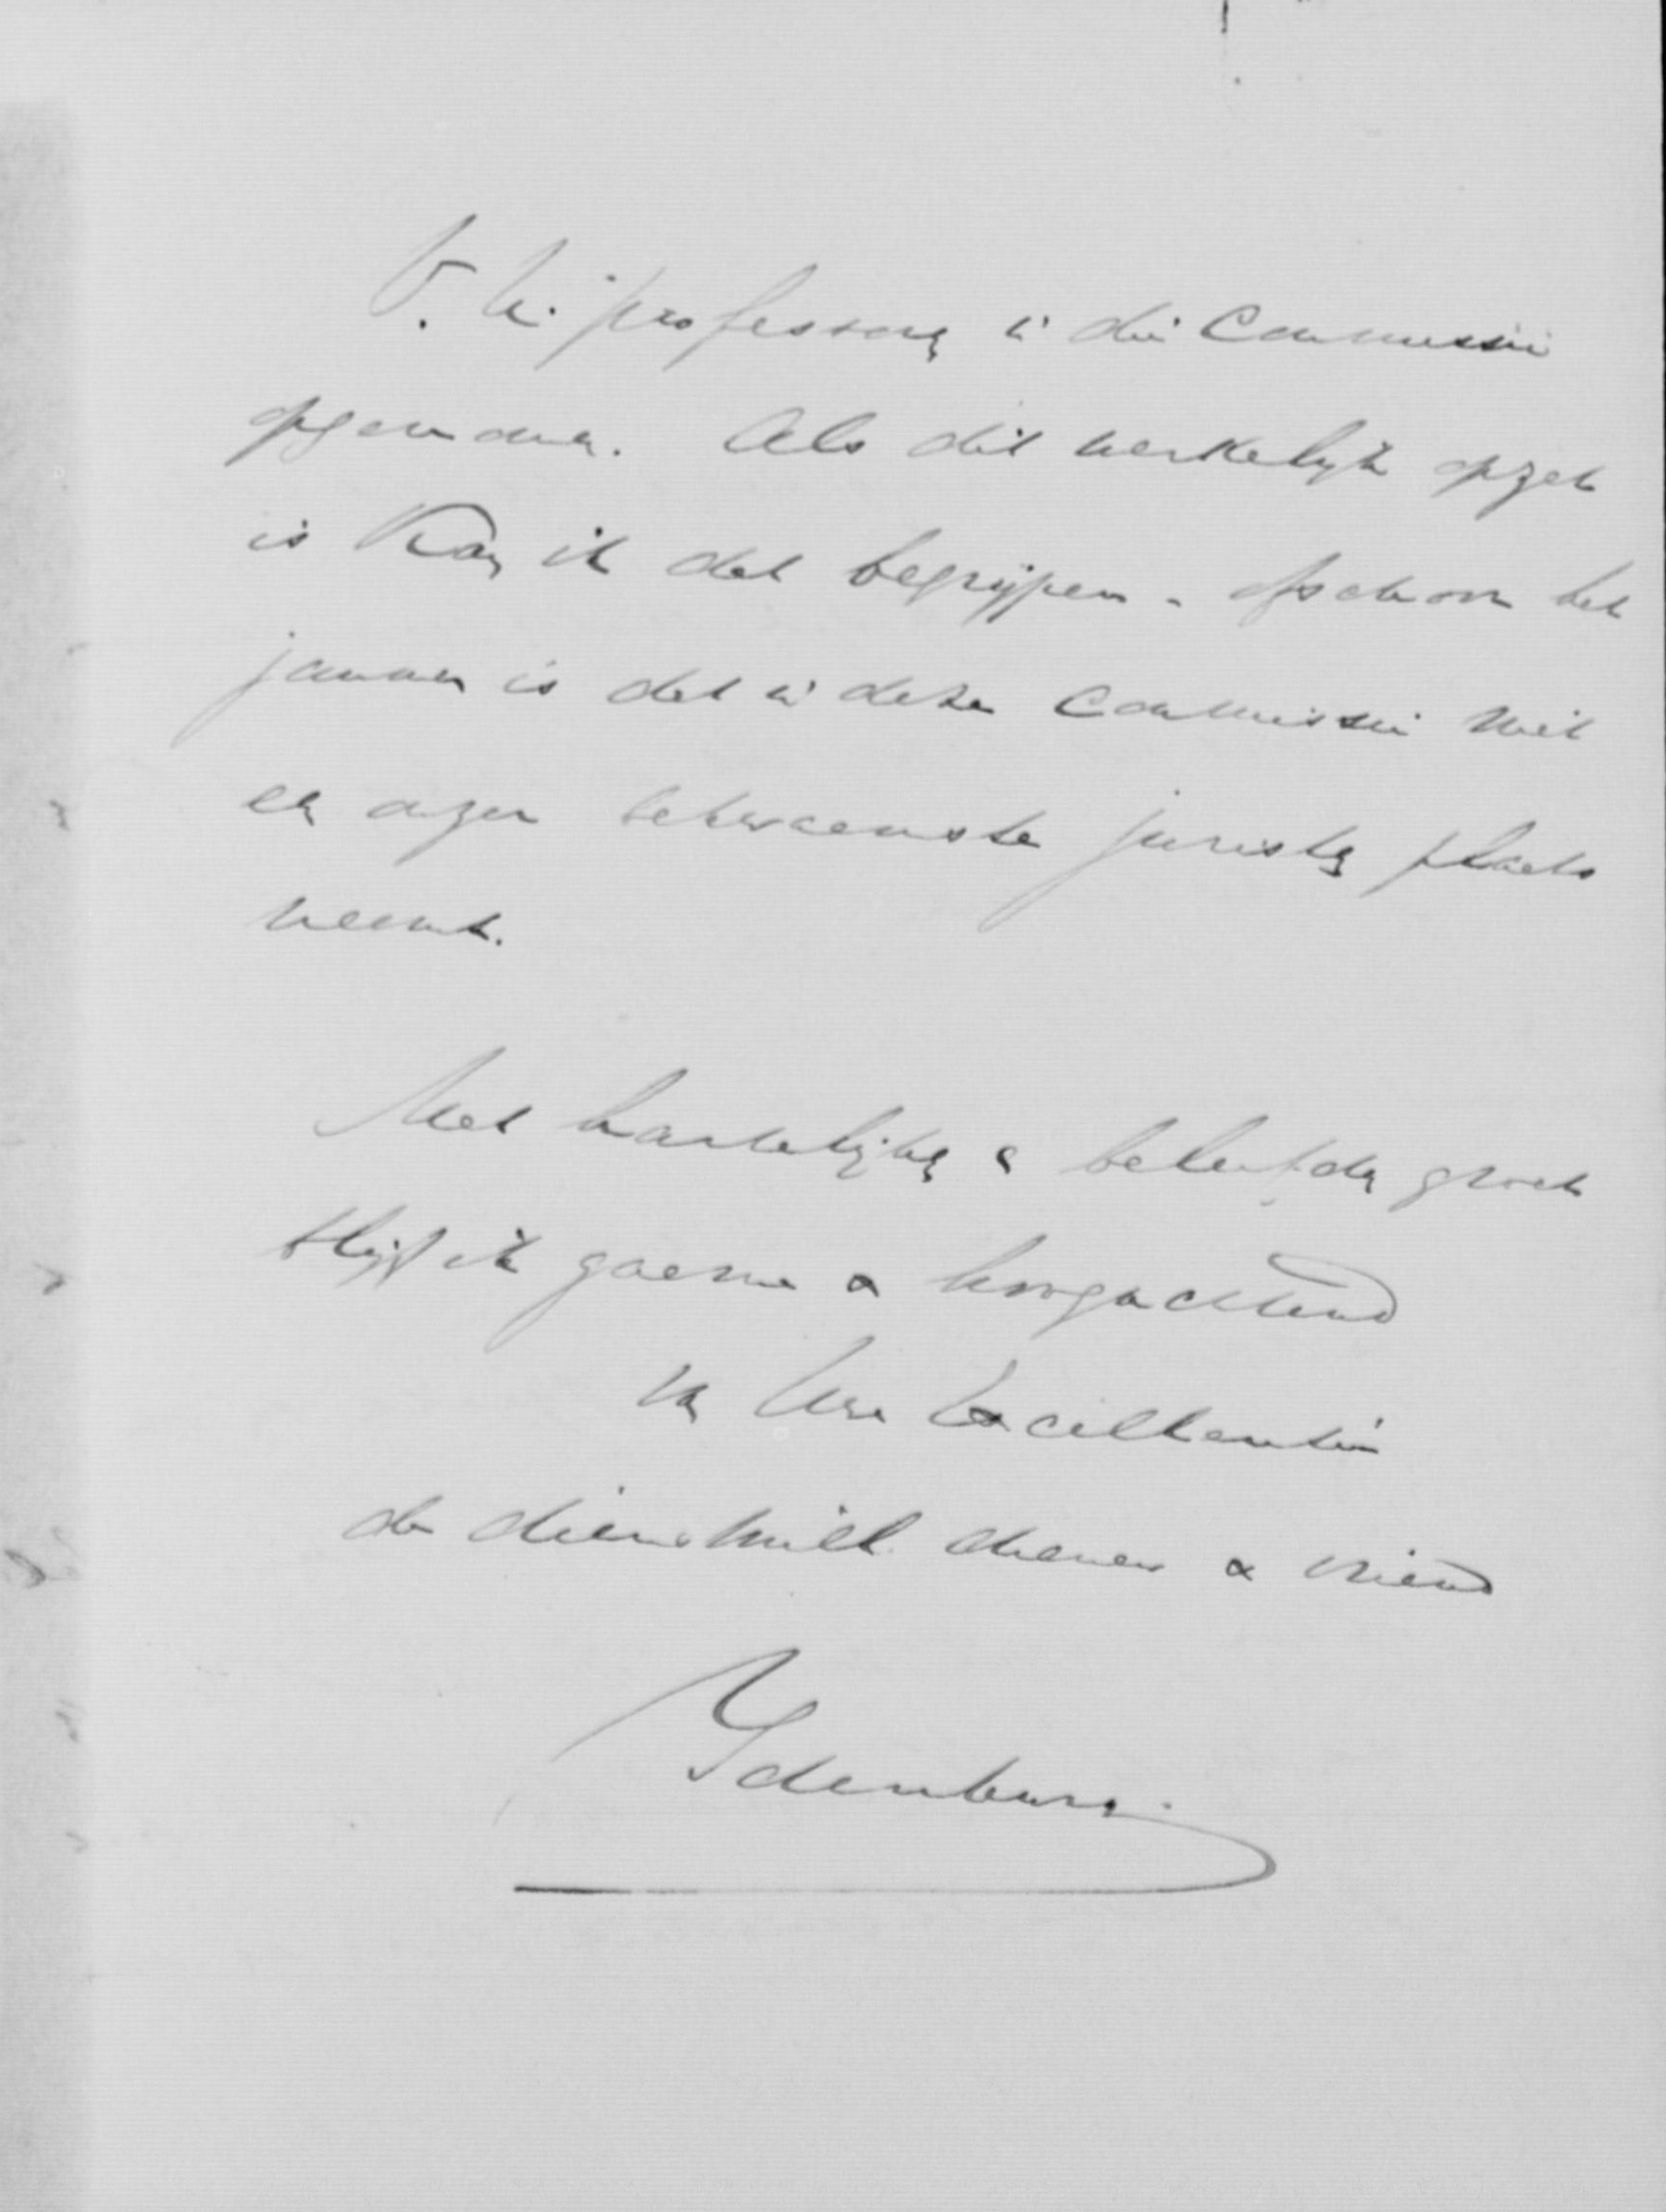 V. U. professoren in die Commissie
opgenomen. Als dit werkelijk opzet
is kan ik dat begrijpen - ofschoon het
jammer is dat in deze Commissie niet
en onzer bekwaamste juristen plaats
neemt.
Met hartelijken & beleefden groet
blijf ik gaarne & hoogachtend
van Uwe Excellentie
de dienstwill. dienaar & vriend
Idenburg.